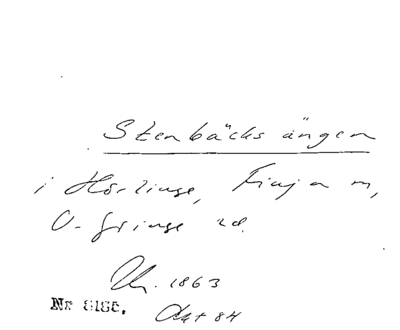 Stenbäcks ängen
i Hörlinge, Finja sn,
V. Göinge hd.
Ur. 1863
Nr 8186.
Okt 84